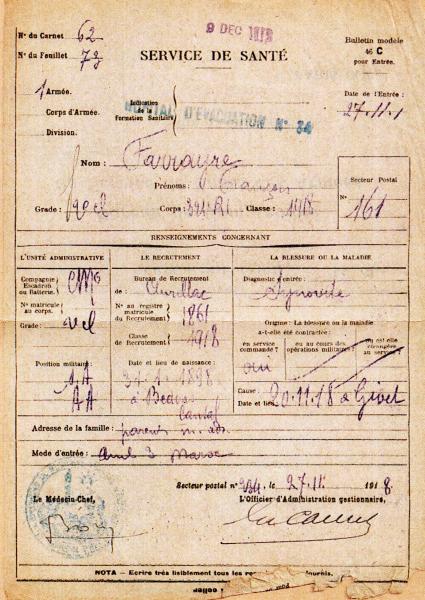 9 DEC 1918
N° du Carnet 62
N° du Feuillet 78
SERVICE DE SANTÉ
Bulletin modèle
46 C
pour Entrée.
1 Armée.
Corps d'Armée.
Division.
Indication
de la
Formation Sanitaire
HOPITAL D'ÉVACUATION N° 34
Date de l'Entrée :
27.11.1
Nom : Farrayre
Prénoms : François
Grade : Corps : Classe : 1918
Secteur Postal
N° 161
RENSEIGNEMENTS CONCERNANT
L'UNITÉ ADMINISTRATIVE
Compagnie
Escadron
ou Batterie.
N° matricule
au corps.
Grade :
Position militaire
LE RECRUTEMENT
Bureau de Recrutement
de : Aurillac
N° au registre
matricule
du Recrutement
1861
Classe
de Recrutement
1918
Date et lieu de naissance :
1898
à
LA BLESSURE OU LA MALADIE
Diagnostic d'entrée :
Synovite
Origine : La blessure ou la maladie
a-t-elle été contractée :
en service
commandé ?
ou au cours des
opérations militaires ?
ou est-elle
étrangère
au service
oui
Cause :
Date et lieu
20.11.18 à Givet
Adresse de la famille : parents
Mode d'entrée : Maroc
Secteur postal n° 234, le 27.11. 1918.
Le Médecin-Chef,
L'Officier d'Administration gestionnaire,
NOTA — Écrire très lisiblement tous les